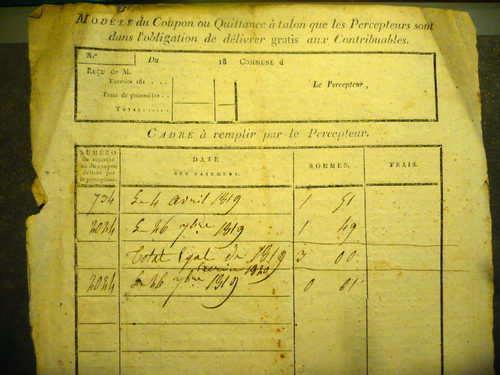 MODÈLE du Coupon ou Quittance à talon que les Percepteurs sont
dans l'obligation de délivrer gratis aux Contribuables.
N.º Du 18 COMMUNE d
REÇU de M.
Exercice 181
Le Percepteur,
Frais de poursuites
TOTAL
CADRE à remplir par le Percepteur.
NUMÉRO du registre ou du coupon délivré par le percepteur.
DATE DES PAIEMENS.
SOMMES.
FRAIS.
734 Le 4 avril 1819 1 51
2024 Le 26 7bre 1819 1 49
Total égal de 1819 3 00
2024 Le 26 7bre 1819 0 01